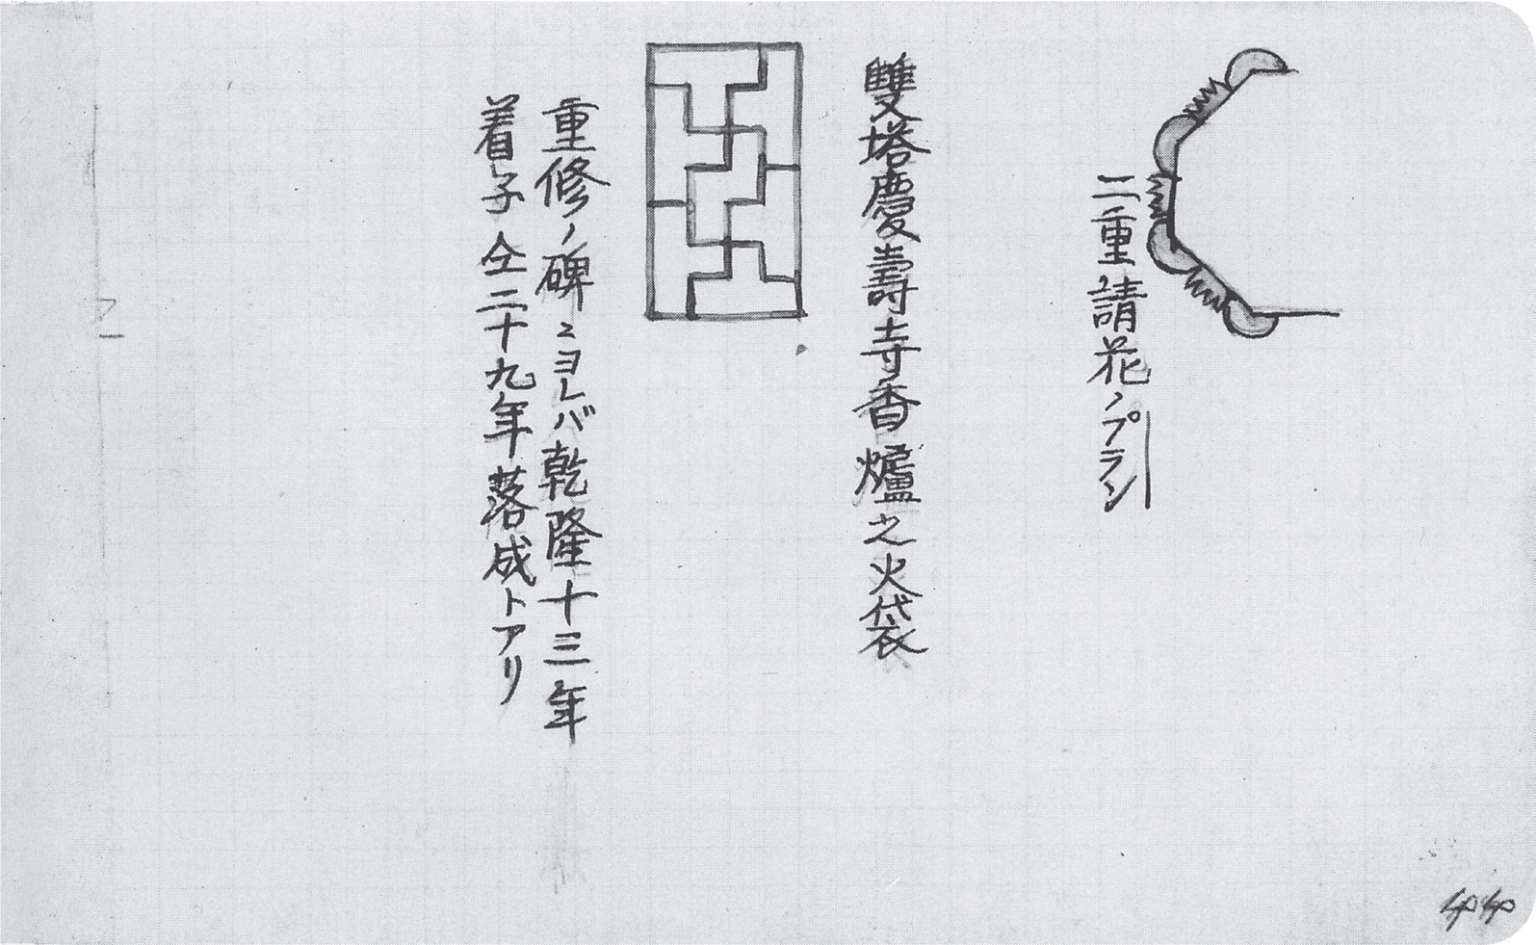 二重請花ノプラン
雙塔慶壽寺香爐之火袋
重修ノ碑ニヨレバ乾隆十三年
着手仝二十九年落成トアリ
44